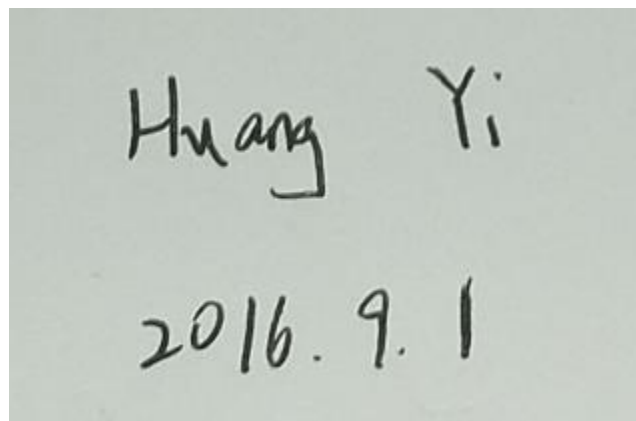 Huang Yi
2016.9.1